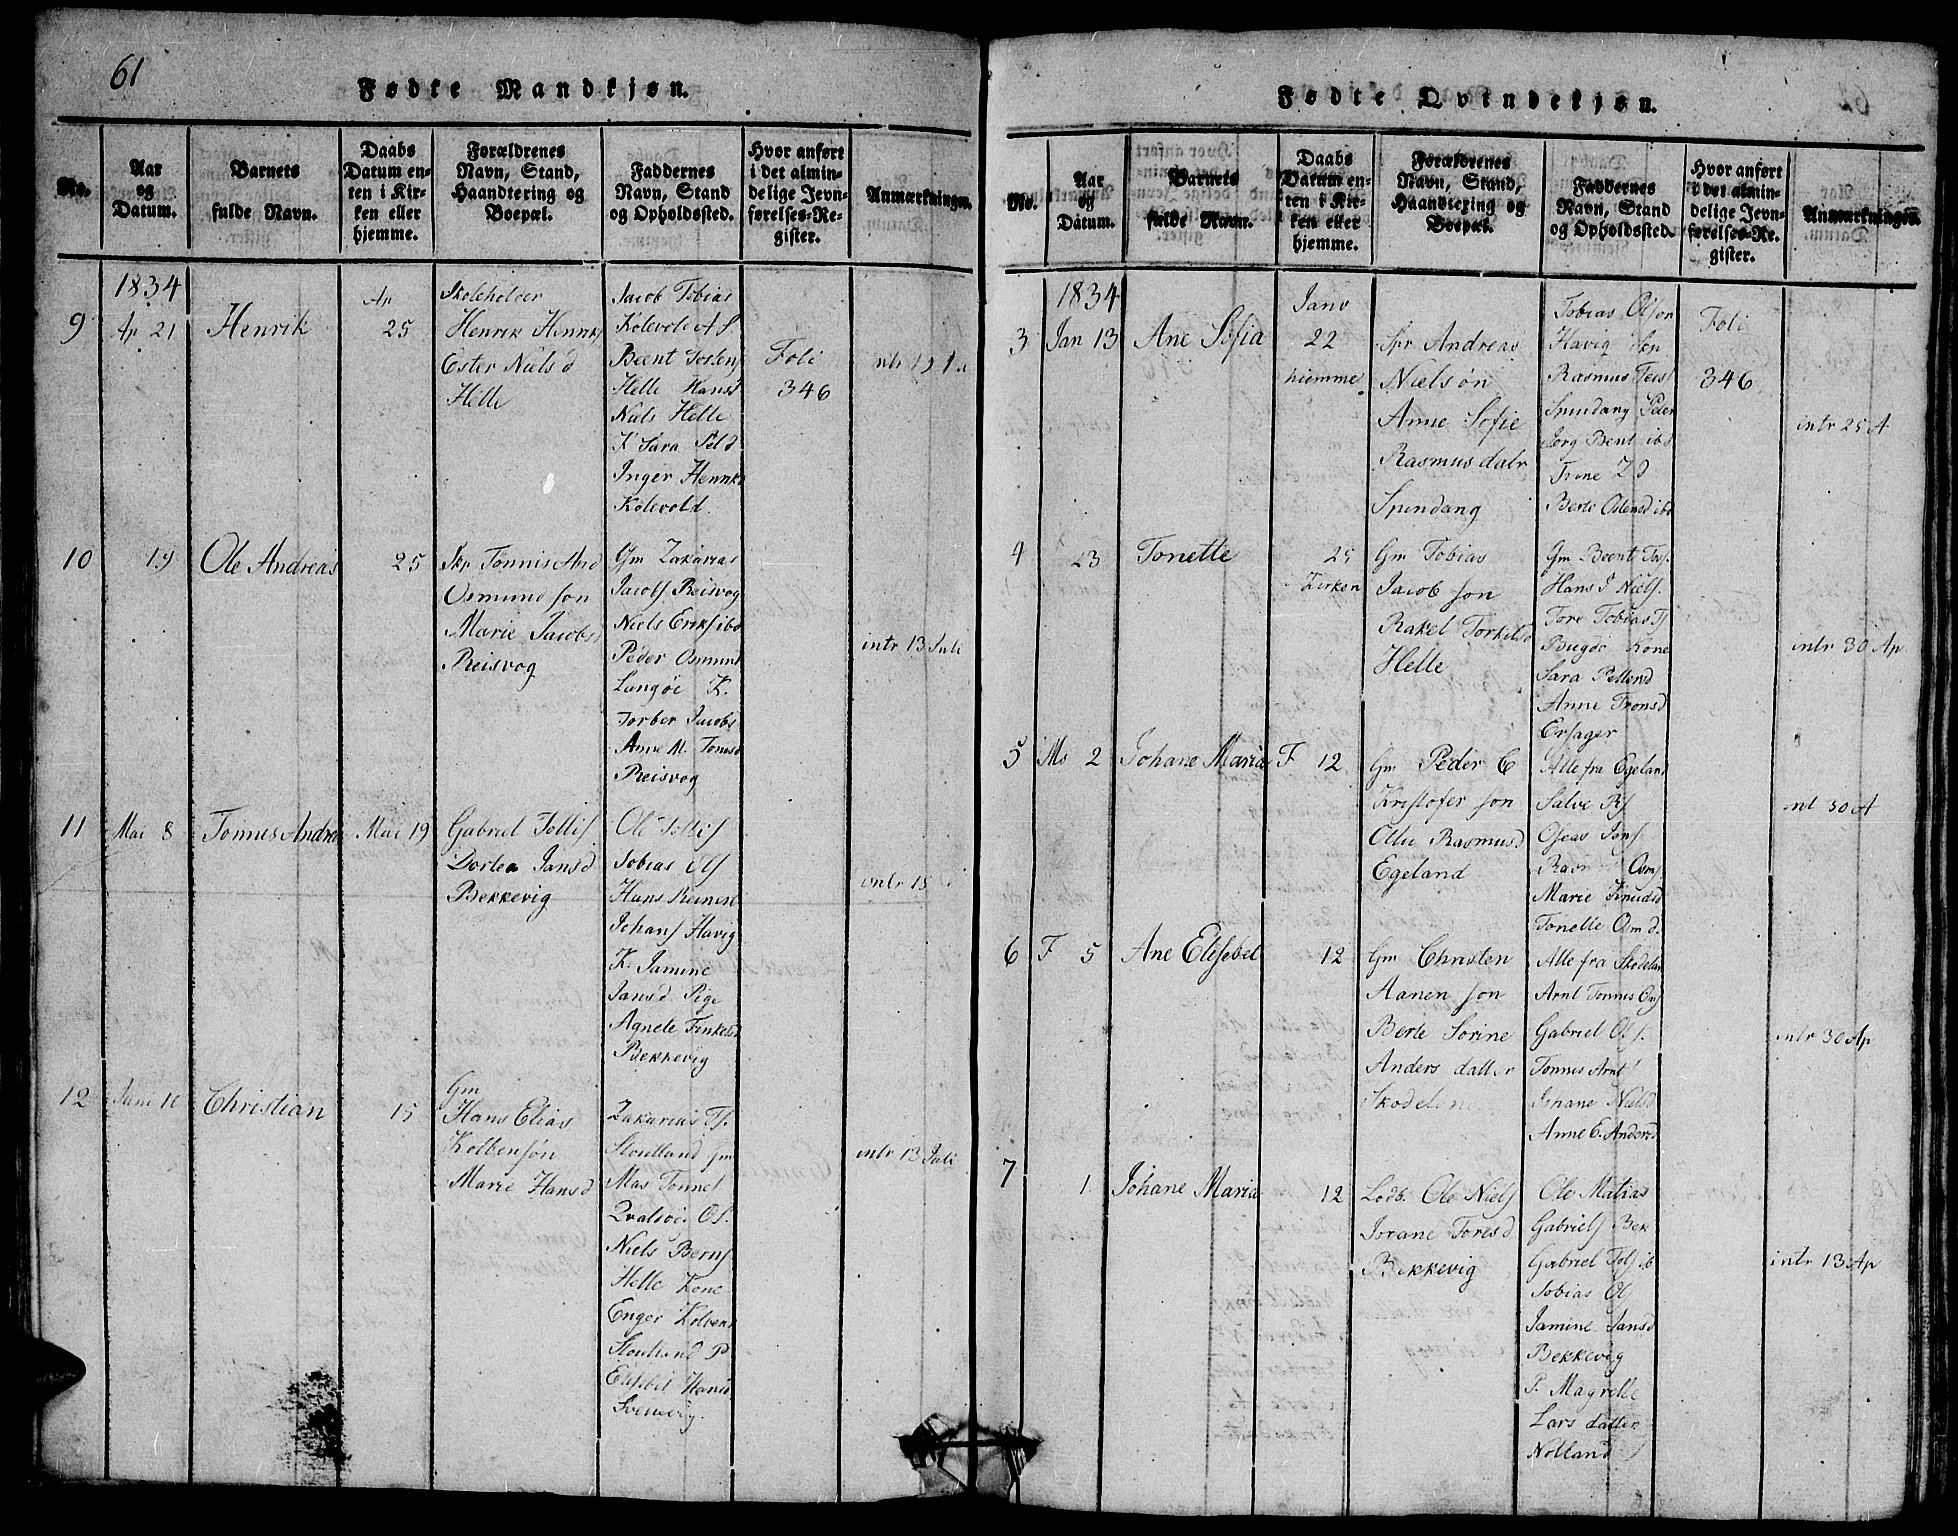 61
Fødte Mandkjøn.
No.
Aar og Datum.
Barnets fulde Navn.
Daabs Datum enten i Kirken eller hjemme.
Forældrenes Navn, Stand, Haandtering og Boepæl.
Faddernes Navn, Stand og Opholdssted.
Hvor anført i det almindelige Jevnførelses-Register.
Anmærkninger.
1834
9
Ap 21
Henrik
Ap
25
Skoleholder
Henrik Henriks
Ester Niels d
Helle
Jacob Tobias
Kolevole A S
Beent Tosten
Helle Hans
Niels Helle
K Sara Pel d
Inger Henriks
Kolevold.
Foli
346
10
19
Ole Andreas
25
Skp Tønnis And
Osmund søn
Marie Jacobs
Reisvog
Gm Zakarias
Jacobs Reisvog
Niels Eriks ibd
Peder Osmun
Langøe K.
Torber Jacobs
Anne M. Tonisd
Reisvog
intr 13 Juli
11
Mai 8
Tønnis Andre
Mai 19
Gabriel Tollis
Dortea Jans d
Bekkevig
Ole Tollis
Tobias Ols
Hans Reiners
Johans Havig
K. Jamine
Jansd Pige
Agnete Tenkelsd
Bekkevig
intr 15
12
Juni 10
Christian
15
Gm
Hans Elias
Kolbensøn
Marie Hans d
Zakarias Ts.
Stoutland Gm
Mas Tonnes
Qvalsøi Os.
Niels Berns
Helle Kone
Enger Kolbens
Stoutland P
Elisebet Hans
Svenevig.
intr 13 Juli
Fødte Qvindekjøn.
62
No.
Aar og Datum.
Barnets fulde Navn.
Daabs Datum enten i Kirken eller hjemme.
Forældrenes Navn, Stand, Haandtering og Boepæl.
Faddernes Navn, Stand og Opholdssted.
Hvor anført i det almindelige Jevnførelses-Register.
Anmærkninger.
1834
3
Jan 13
Ane Sofia
Janv
22
hiemme
Spr Andreas
Nielsøn
Anne Sofie
Rasmus datr
Spindang
Tobias Olsøn
Havig Skp
Rasmus Ters
Spindang Peder
Jørg Bent ibd
Trine Z d
Berte Olensd ibd
Foli
346
intr 25 A
4
23
Tonette
25
Kirken
Gm Tobias
Jacob søn
Rakel Torkilsd
Helle
Gm Beent Tos.
Hans J Niels.
Tore Tobias Ts
Bugdø Kone
Sara Pellersd
Anne Tronsd
Ersager
intr 30 Ap
5
Ms 2
Johane Maria
F 12
Gm Peder C
Kristofer søn
Ollu Rasmusd
Egeland
Alle fra Egeland
Salve Rs
Oseas Jans
Osm
Marie Knudsd
Tonette Osm d.
nt 30 A
6
F 5
Ane Elisebet
12
Gm Christen
Aanen søn
Berte Sorine
Anders datter
Skodelan
Alle fra Skodelan
Arnt Tonnes Ons
Gabriel Ols.
Tonnes Arnt
Jonane Nielsd
Anne E. Andersd
intr 30 Ap
7
1.
Johane Maria
12
Lods. Ole Niels
Jorane Toresd
Bekkevig
Ole Matias
Gabriels Bek
Gabriel Tols ib
Tobias Ols
Jamine Jansd
Bekkevig
P. Magrelle
Lars datter
Nolland
intr 13 Ap